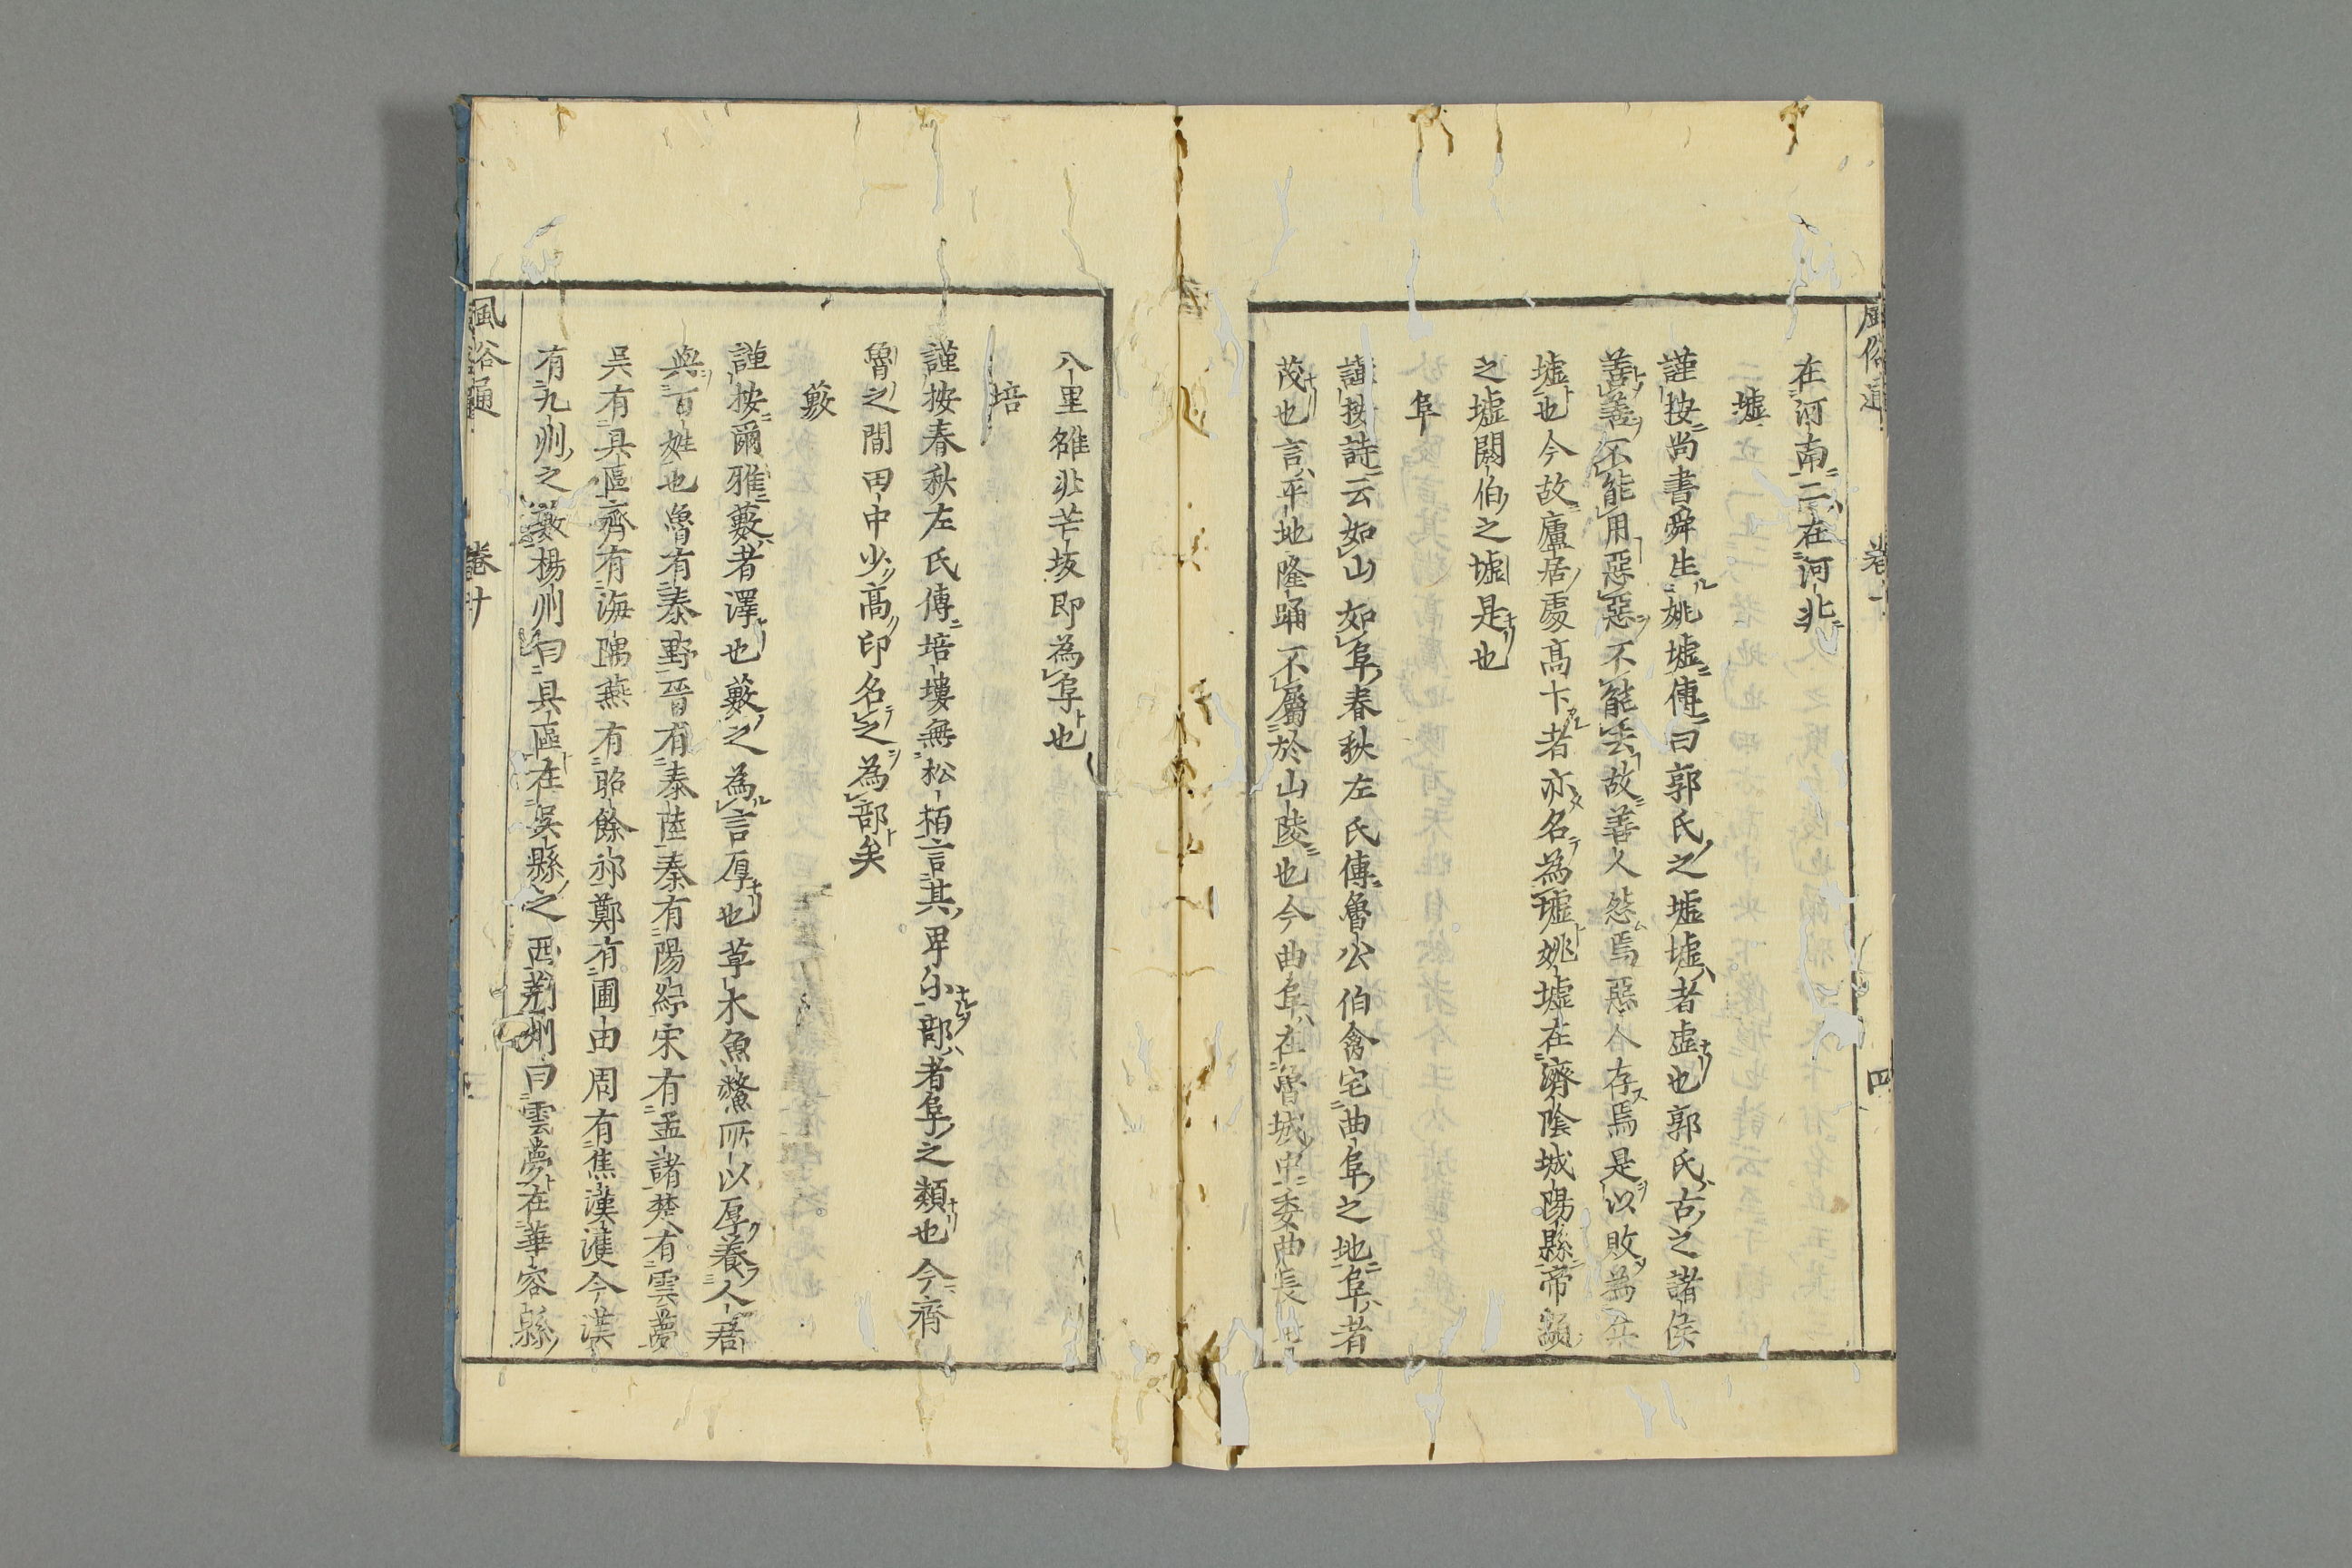 風俗通 卷十 四
在河南二在河北
墟
謹按尚書舜生姚墟傳曰郭氏之墟墟者虛也郭氏古之諸侯
善善不能用惡惡不能去故善人怨焉惡人存焉是以敗為丘
墟也今故廬居處高下者亦名為墟姚墟在濟陰城陽縣帝顓
之墟閼伯之墟是也
阜
謹按詩云如山如阜春秋左氏傳魯公伯禽宅曲阜之地阜者
茂也言平地隆踊不屬於山陵也今曲阜在魯城中委曲長
八里雒北芒坂即為阜也
培
謹按春秋左氏傳培塿無松栢言其卑小部者阜之類也今齊
魯之間田中少高卬名之為部矣
藪
謹按爾雅藪者澤也藪之為言厚也草木魚鱉所以厚養人君
與百姓也魯有泰野晉有泰陸秦有陽綍宋有孟諸楚有雲夢
吳有具區齊有海隅燕有昭餘祁鄭有圃田周有焦濩今漢
有九州之藪楊州曰具區在吳縣之西荊州曰雲夢在華容縣
風俗通 卷十